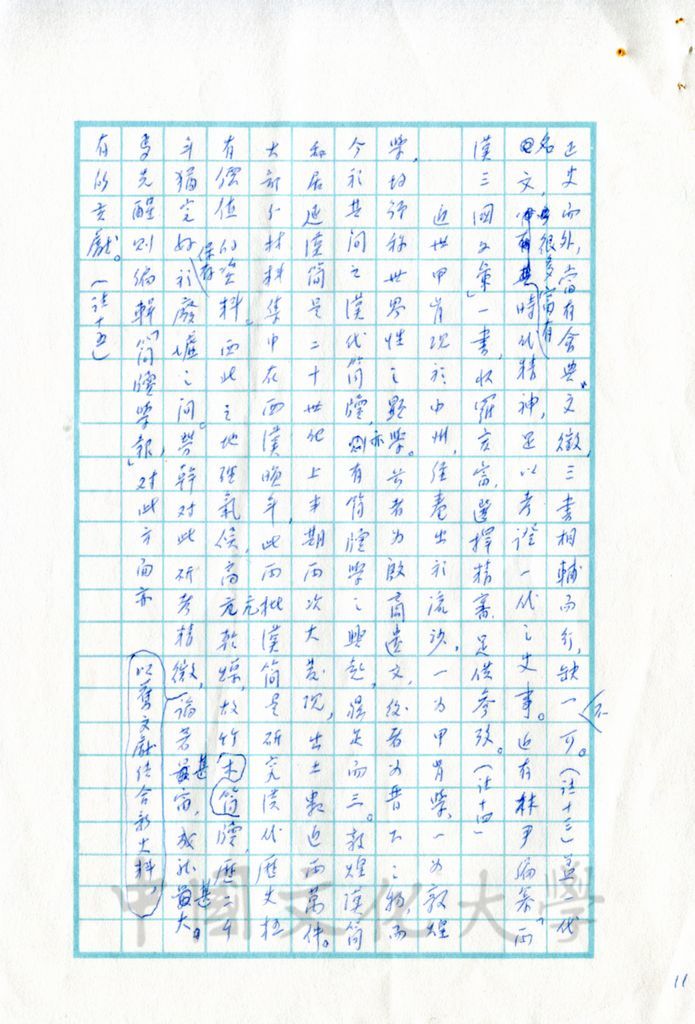 正史而外，當有會典、文徵，三書相輔而行，缺一不可。（註十三）蓋一代
名文，很多富有時代精神，足以考證一代之史事。近有林尹編纂「兩
漢三國文彙」一書，收羅宏富，選擇精審，足供參攷。（註十四）
近世甲骨現於中州，經卷出於流沙，一為甲骨學，一為敦煌
學，均訝稱世界性之顯學。前者為殷商遺文，後者為晉下之物，而
今於其間之漢代簡牘，亦有簡牘學之興起，得足而三。敦煌漢簡
和居延漢簡是二十世紀上半期兩次大發現，出土數近兩萬件。
大部分材料集中在西漢晚年，此兩批漢簡是研究漢代歷史極
有價值的資料。西北之地理氣候，高亢乾燥，故竹木簡牘，歷二千
年猶完好保存於廢墟之間。勞榦對此研考精微，論著甚富，成就甚大。
馬先醒則編輯「簡牘學報」，對此方面亦
以舊文獻結合新史料，
有的貢獻。（註十五）
11
中國文化大學